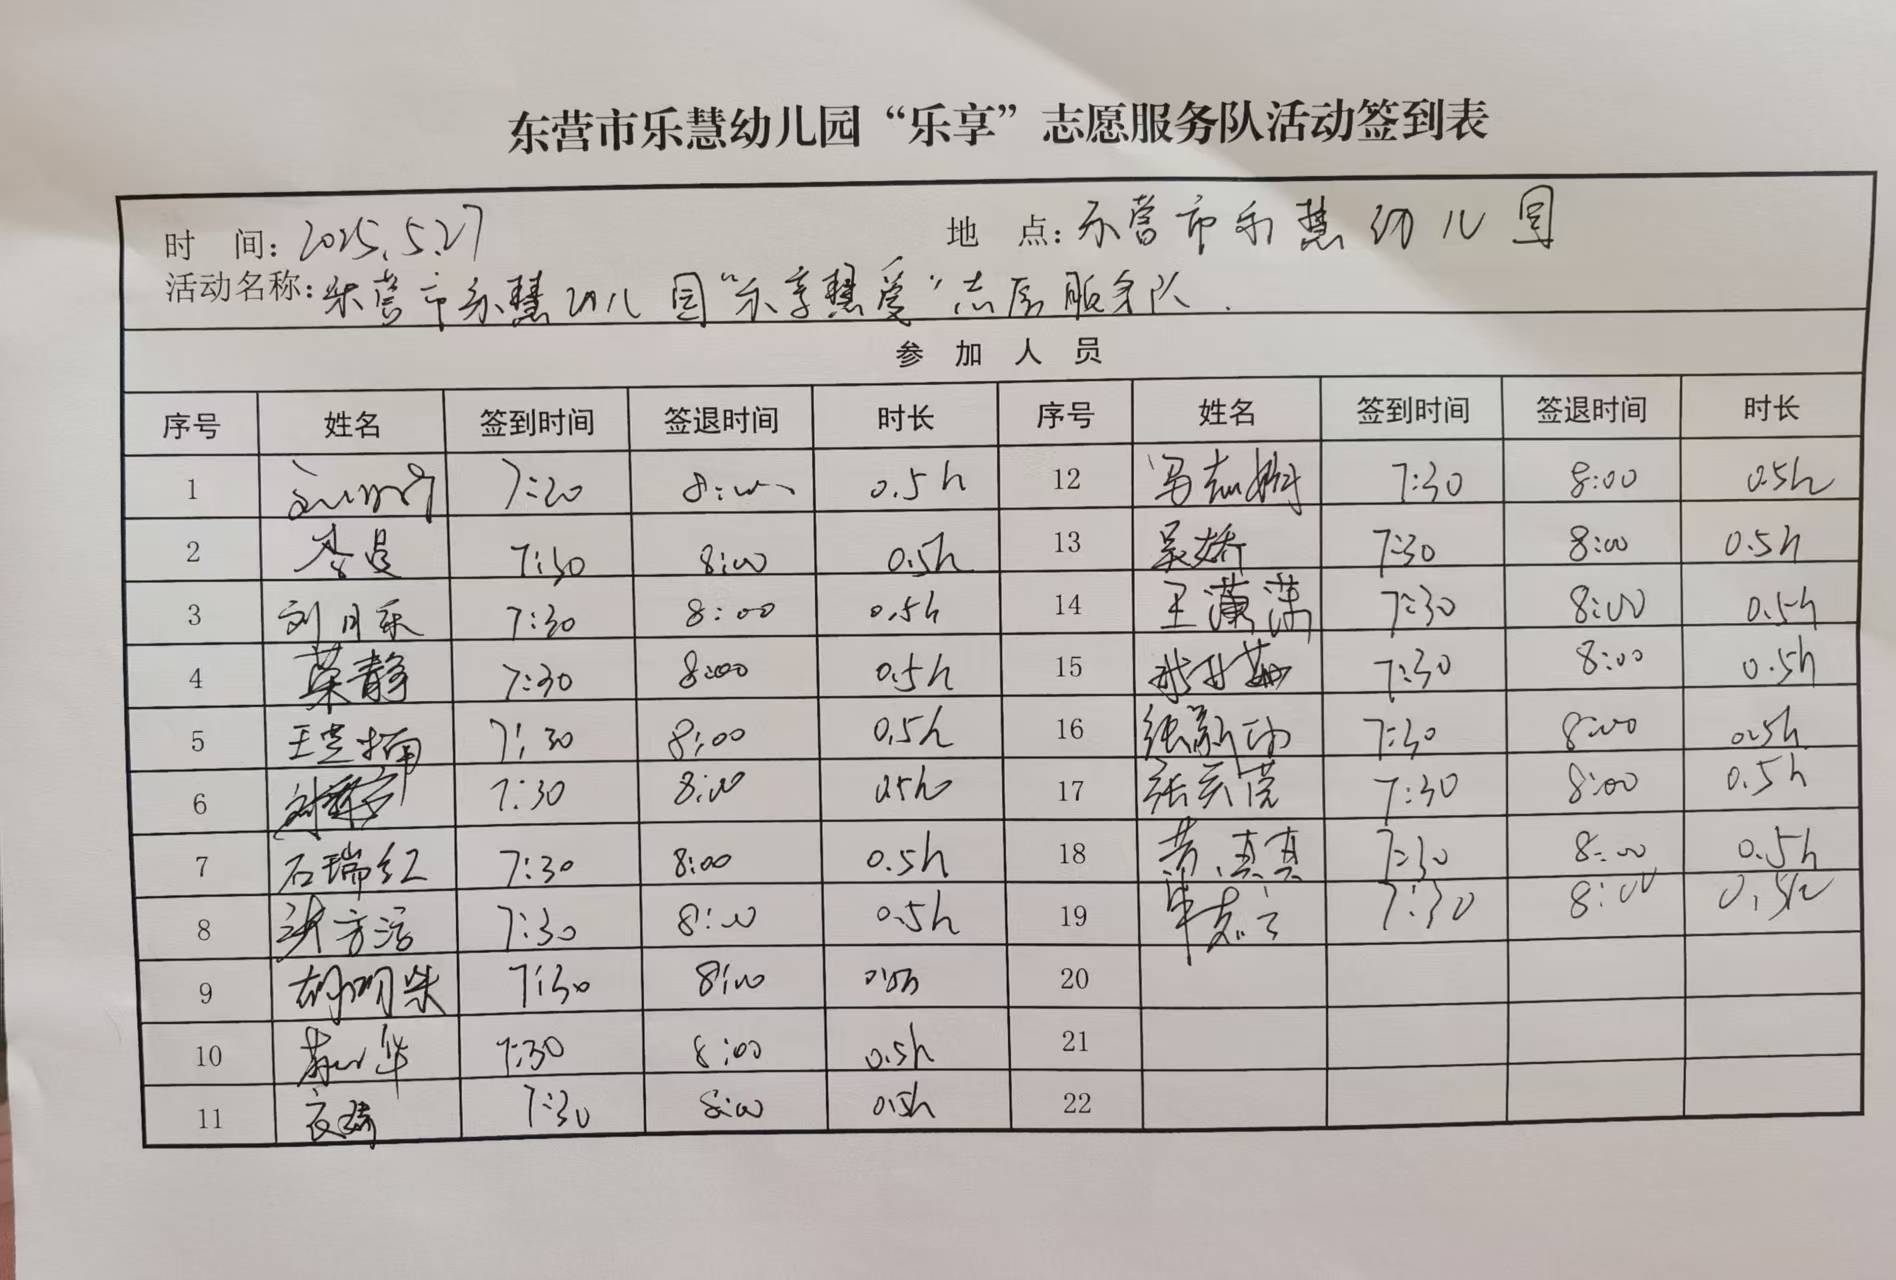 东营市乐慧幼儿园“乐享”志愿服务队活动签到表
时 间：2025.5.27 地 点：东营市乐慧幼儿园
活动名称：东营市乐慧幼儿园“乐享慧爱”志愿服务队.
参 加 人 员
序号 姓名 签到时间 签退时间 时长 序号 姓名 签到时间 签退时间 时长
1 7:30 8:00 0.5h 12 7:30 8:00 0.5h
2 7:30 8:00 0.5h 13 吴娇 7:30 8:00 0.5h
3 刘月乐 7:30 8:00 0.5h 14 王潇潇 7:30 8:00 0.5h
4 荣静 7:30 8:00 0.5h 15 7:30 8:00 0.5h
5 7:30 8:00 0.5h 16 7:30 8:00 0.5h
6 7:30 8:00 0.5h 17 7:30 8:00 0.5h
7 石瑞红 7:30 8:00 0.5h 18 黄真真 7:30 8:00 0.5h
8 7:30 8:00 0.5h 19 7:30 8:00 0.5h
9 胡明柴 7:30 8:00 0.5h 20
10 7:30 8:00 0.5h 21
11 7:30 8:00 0.5h 22